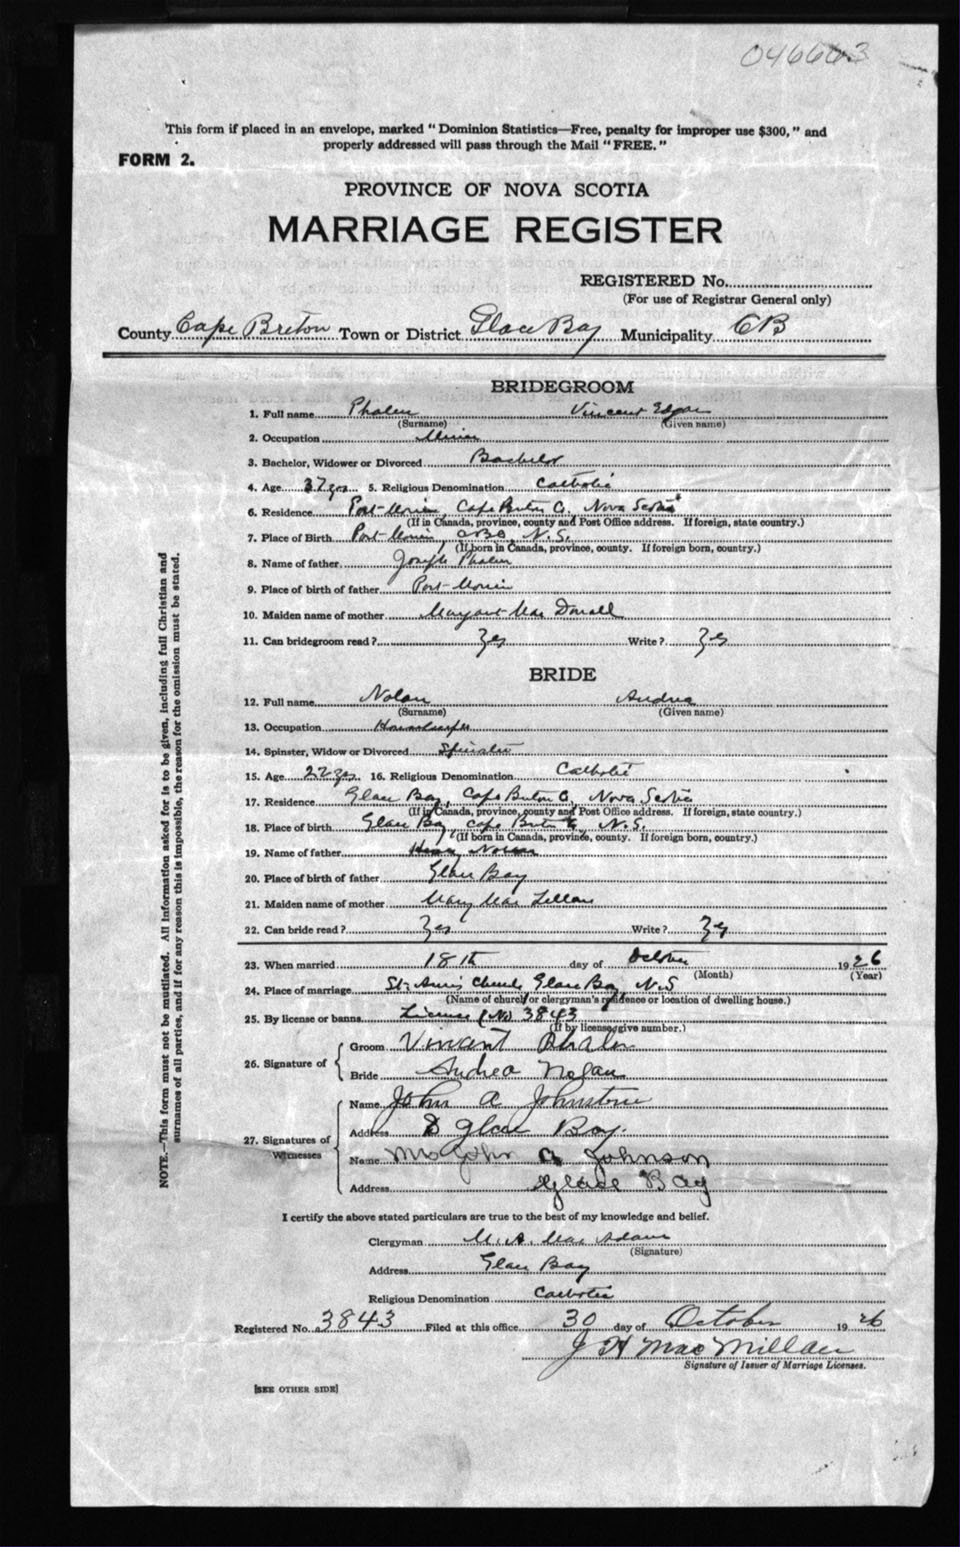 046663
This form if placed in an envelope, marked "Dominion Statistics—Free, penalty for improper use $300," and
properly addressed will pass through the Mail "FREE."
FORM 2.
PROVINCE OF NOVA SCOTIA
MARRIAGE REGISTER
REGISTERED No.
(For use of Registrar General only)
County Cape Breton Town or District Glace Bay Municipality CB
BRIDEGROOM
1. Full name Phalen Vincent Edgar
(Surname) (Given name)
2. Occupation Miner
3. Bachelor, Widower or Divorced Bachelor
4. Age 37 yrs 5. Religious Denomination Catholic
6. Residence Port-Morien, Cape Breton Co, Nova Scotia
(If in Canada, province, county and Post Office address. If foreign, state country.)
7. Place of Birth Port-Morien, N.S.
(If born in Canada, province, county. If foreign born, country.)
8. Name of father Joseph Phalen
9. Place of birth of father Port-Morien
10. Maiden name of mother Margaret Mac Donald
11. Can bridegroom read? Yes Write? Yes
BRIDE
12. Full name Nolan Andrea
(Surname) (Given name)
13. Occupation Housekeeper
14. Spinster, Widow or Divorced Spinster
15. Age 22 yrs. 16. Religious Denomination Catholic
17. Residence Glace Bay, Cape Breton Co, Nova Scotia
(If in Canada, province, county and Post Office address. If foreign, state country.)
18. Place of birth Glace Bay Cape Breton N.S.
(If born in Canada, province, county. If foreign born, country.)
19. Name of father
20. Place of birth of father Glace Bay
21. Maiden name of mother Mary Mac Lellan
22. Can bride read? Yes Write? Yes
23. When married 18th day of October 1926
(Month) (Year)
24. Place of marriage St. Ann's Church, Glace Bay, N.S
(Name of church or clergyman's residence or location of dwelling house.)
25. By license or banns License (No) 3843
(If by license, give number.)
26. Signature of
Groom Vincent Phalen
Bride Andrea Nolan
27. Signatures of Witnesses
Name John A Johnstone
Address Glace Bay.
Name Mrs John A Johnson
Address Glace Bay
I certify the above stated particulars are true to the best of my knowledge and belief.
Clergyman M. A. Mac Adam
(Signature)
Address Glace Bay
Religious Denomination Catholic
Registered No. 3843 Filed at this office 30 day of October 1926
J H MacMillan
Signature of Issuer of Marriage Licenses.
[SEE OTHER SIDE]
NOTE.—This form must not be mutilated. All information asked for is to be given, including full Christian and
surnames of all parties, and if for any reason this is impossible, the reason for the omission must be stated.